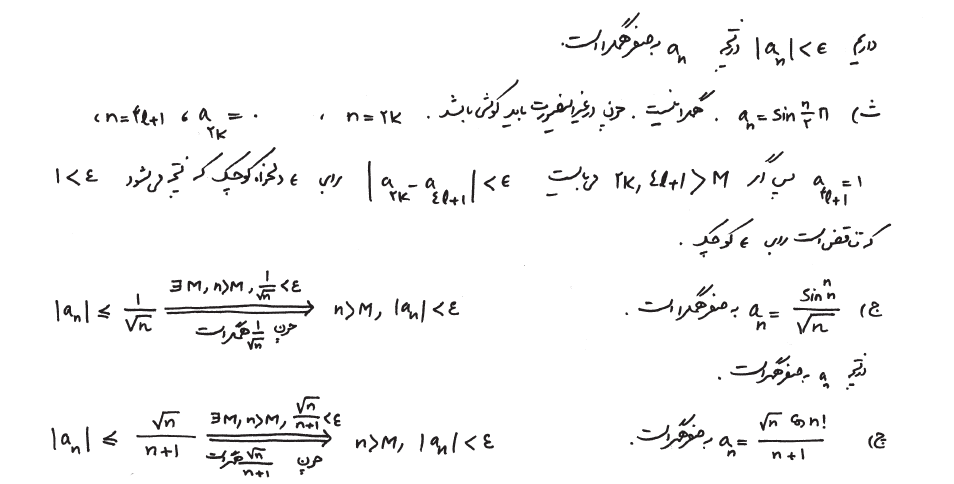 داریم |aₙ|<ε درنتیجه aₙ به صفر همگراست.
ث) aₙ = sin n/۲ π . همگرا نیست . چون در غیر اینصورت باید کوشی باشد . n=۲k ، a₂ₖ = ۰ ، n=۴l+۱ ،
a₄ₗ₊₁ = ۱ پس اگر ۲k, ۴l+۱ > M می‌بایست |a₂ₖ - a₄ₗ₊₁| < ε برای ε دلخواه کوچک که نتیجه می‌شود ۱<ε
که تناقض است برای ε کوچک .
ج) aₙ = sinⁿn / √n به صفر همگراست . |aₙ| ≤ 1/√n ∃M, n>M, 1/√n <ε چون 1/√n همگراست n>M, |aₙ|<ε
درنتیجه aₙ به صفر همگراست .
چ) aₙ = √n cos n! / n+1 به صفر همگراست . |aₙ| ≤ √n / n+1 ∃M, n>M, √n/n+1 <ε چون √n/n+1 همگراست n>M, |aₙ|<ε